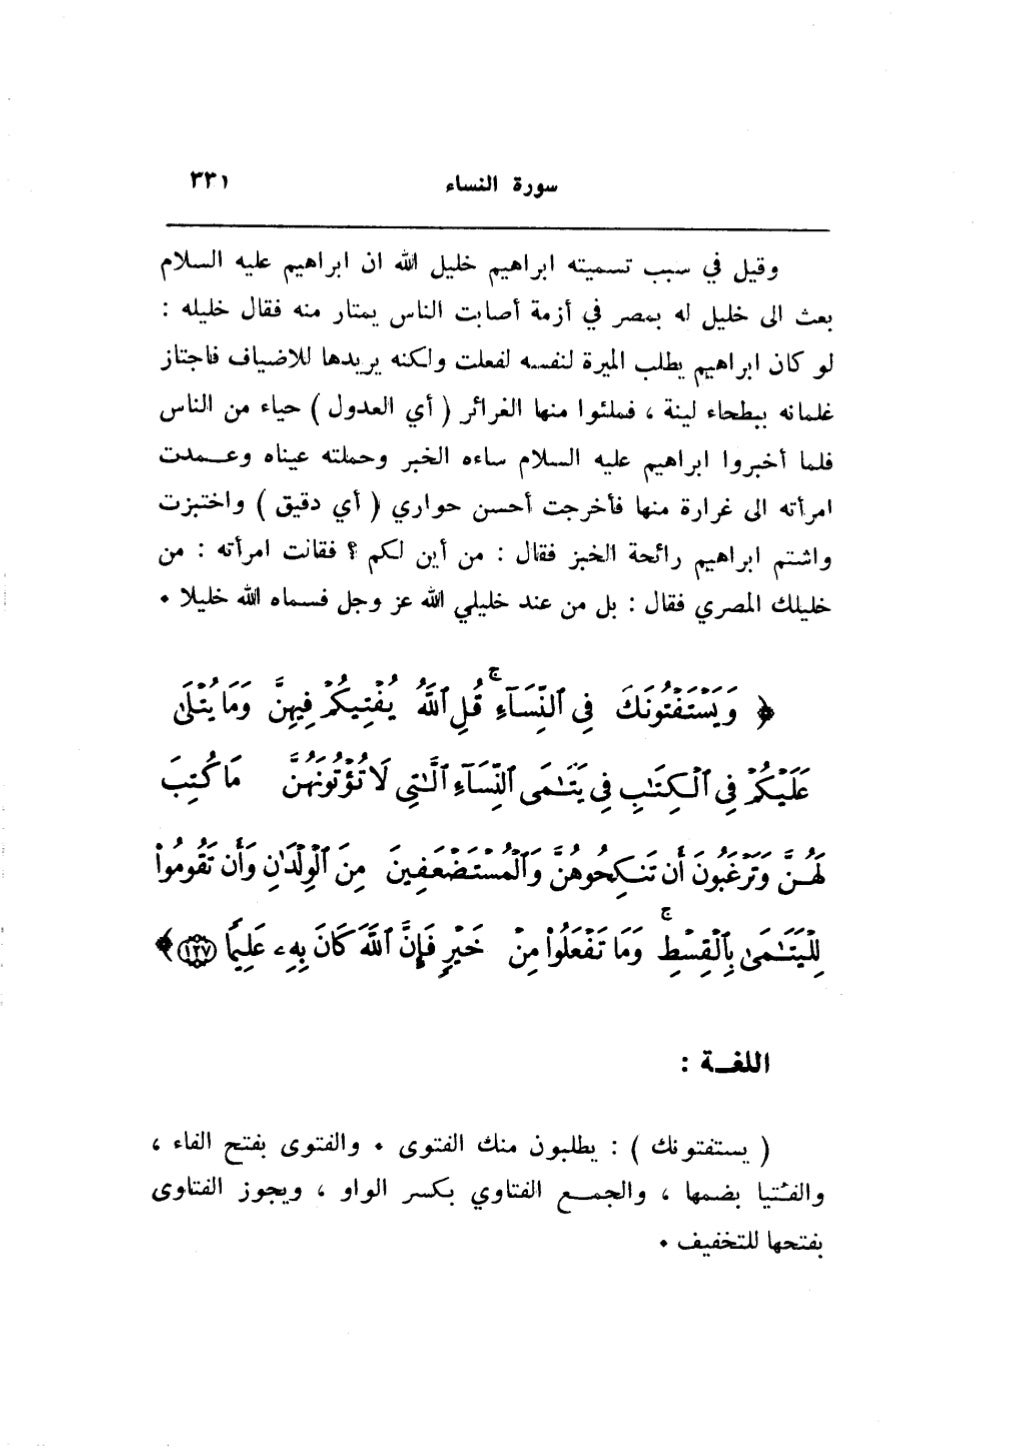 سورة النساء ٣٣١
وقيل في سبب تسميته ابراهيم خليل الله ان ابراهيم عليه السلام
بعث الى خليل له بمصر في أزمة أصابت الناس يمتار منه فقال خليله :
لو كان ابراهيم يطلب الميرة لنفسه لفعلت ولكنه يريدها للاضياف فاجتاز
غلمانه ببطحاء لينة ، فملئوا منها الغرائر ( أي العدول ) حياء من الناس
فلما أخبروا ابراهيم عليه السلام ساءه الخبر وحملته عيناه وعمدت
امرأته الى غرارة منها فأخرجت أحسن حواري ( أي دقيق ) واختبزت
واشتم ابراهيم رائحة الخبز فقال : من أين لكم ؟ فقالت امرأته : من
خليلك المصري فقال : بل من عند خليلي الله عز وجل فسماه الله خليلا •
﴿ وَيَسْتَفْتُونَكَ فِي ٱلنِّسَآءِ ۚ قُلِ ٱللَّهُ يُفْتِيكُمْ فِيهِنَّ وَمَا يُتْلَىٰ
عَلَيْكُمْ فِي ٱلْكِتَٰبِ فِي يَتَٰمَى ٱلنِّسَآءِ ٱلَّٰتِي لَا تُؤْتُونَهُنَّ مَا كُتِبَ
لَهُنَّ وَتَرْغَبُونَ أَن تَنكِحُوهُنَّ وَٱلْمُسْتَضْعَفِينَ مِنَ ٱلْوِلْدَٰنِ وَأَن تَقُومُوا۟
لِلْيَتَٰمَىٰ بِٱلْقِسْطِ ۚ وَمَا تَفْعَلُوا۟ مِنْ خَيْرٍ فَإِنَّ ٱللَّهَ كَانَ بِهِۦ عَلِيمًا ١٢٧ ﴾
اللغـة :
( يستفتونك ) : يطلبون منك الفتوى • والفتوى بفتح الفاء ،
والفُتيا بضمها ، والجمع الفتاوي بكسر الواو ، ويجوز الفتاوى
بفتحها للتخفيف •